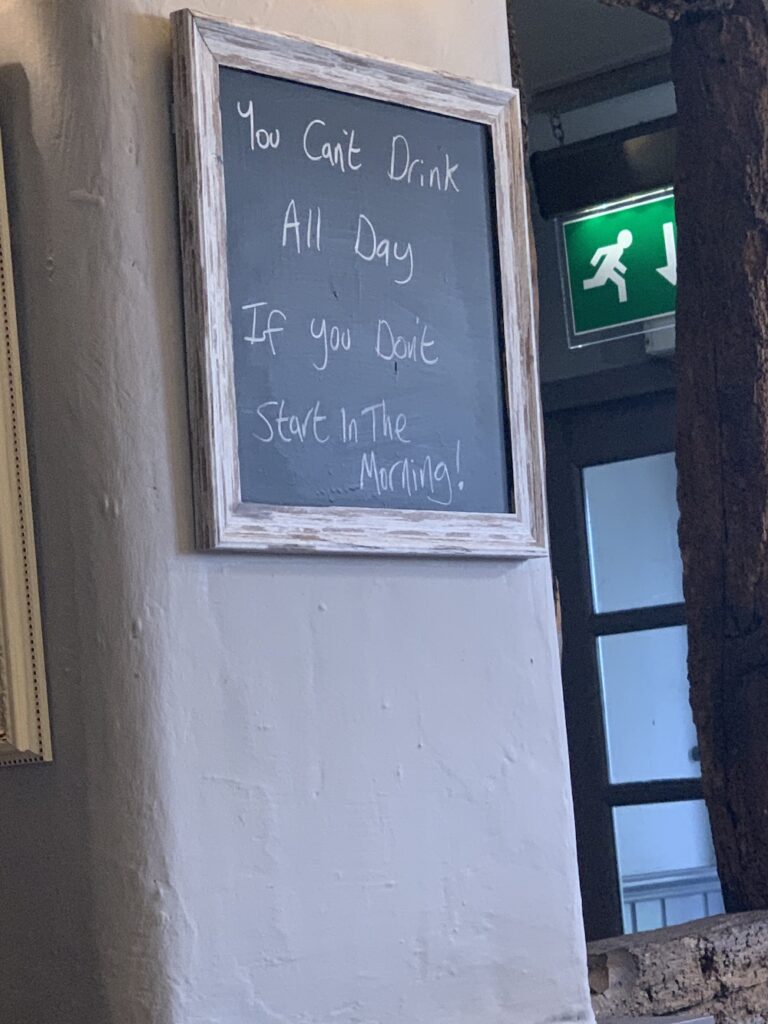 You Can't Drink
All Day
If you Don't
Start In The
Morning!